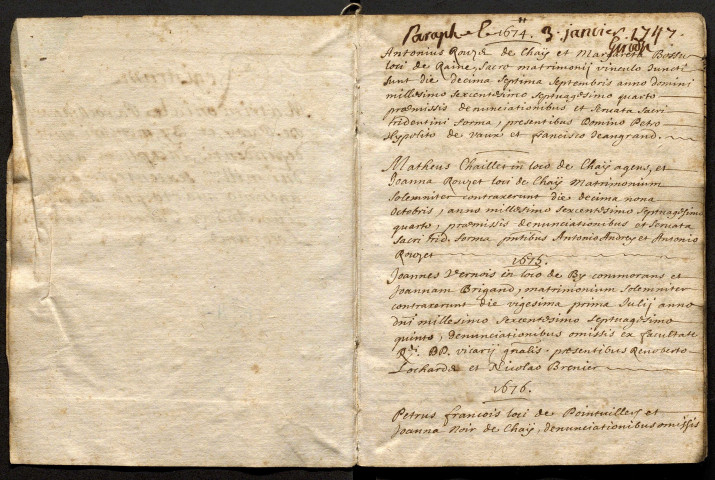 Paraphe le 1674. 3. janvier 1747.
Antonius Rouzet de Chaÿ et Margareta Bossu
loci de Raine, Sacro matrimonij vinculo Juncti
sunt die decima Septima Septembris anno domini
millesimo Sexcentesimo Septuagesimo quarto
præmissis denunciationibus et Servata Sacri
tridentini forma, præsentibus Domino Petro
Hypolito de Vaux et francisco Jeangrand.
Matheus Chaillet in loco de Chaÿ agens, et
Joanna Rouzet loci de Chaÿ Matrimonium
Solemniter contraxerunt die decima nona
Octobris, anno millesimo Sexcentesimo Septuagesimo
quarto, præmissis denunciationibus et Servata
Sacri trid. forma pntibus Antonio Andrey et Antonio
Rouzet
1675.
Joannes Vernois in loco de By commorans et
Joannam Brigand, matrimonium Solemniter
contraxerunt die vigesima prima Julij anno
dni millesimo Sexcentesimo Septuagesimo
quinto, denunciationibus omissis ex facultate
Rdi. DD. vicarij gnalis. præsentibus Renoberto
Lochard et Nicolao Brenier
1676.
Petrus francois loci de Pointvillers et
Joanna Noir de Chaÿ, denunciationibus omissis